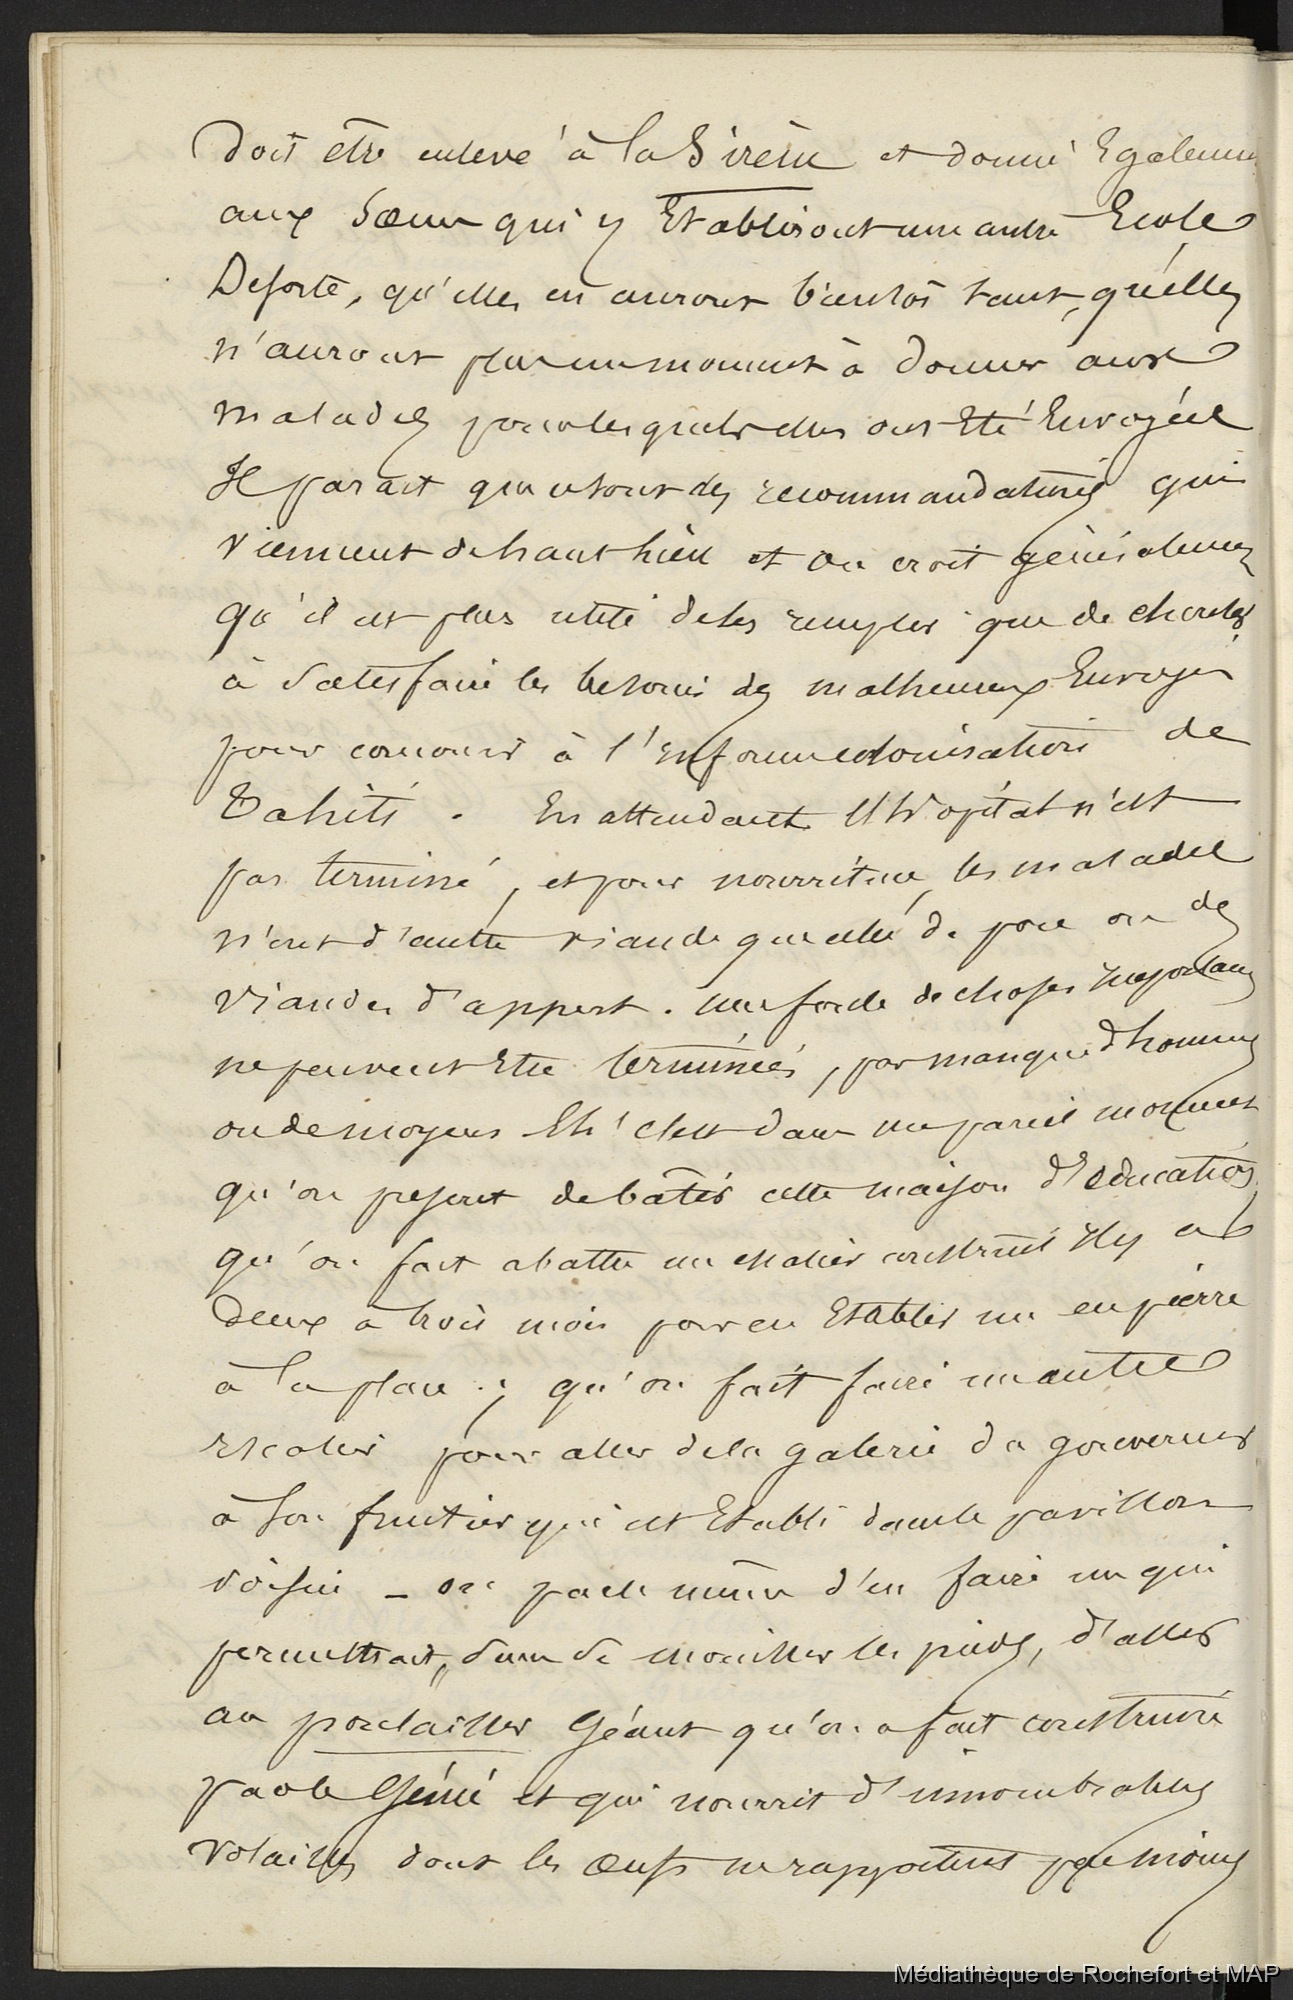 doit être enlevé à la Sirène et donné Egalement
aux Sœurs qui y Etablisont une autre Ecole
De sorte, qu'elles en auront bientôt tant, qu'elles
n'auront plus un moment à donner aux
malades pour lesquels elles ont Eté Envoyées
Il parait que ce sont des recommandations qui
viennent de haut lieu et on croit généralement
qu'il est plus utile de les remplir que de chercher
à satisfaire les besoins des malheureux Envoyés
pour concourir à l'informe colonisation de
Tahiti. En attendant l'hopital n'est
pas terminé, et pour nourriture, les malades
n'ont d'autre viande que celle de porc ou des
viandes d'appert. Une foule de choses importantes
ne peuvent Etre terminées, par manque d'hommes
ou de moyens Eh! c'est dans un pareil moment
qu'on prescrit de bâtir cette maison d'éducation,
qu'on fait abattre un escalier construit il y a
deux à trois mois pour en Etablir un en pierre
à la place ; qu'on fait faire un autre
escalier pour aller de la galerie du gouverneur
à son fruitier qui est Etabli dans le pavillon
voisin _ on parle même d'en faire un qui
permettrait, sans se mouiller les pieds, d'aller
au poulailler Géant qu'on a fait construire
par le Génie et qui nourrit d'innombrables
volailles dont les œufs ne rapportent pas moins
Médiathèque de Rochefort et MAP